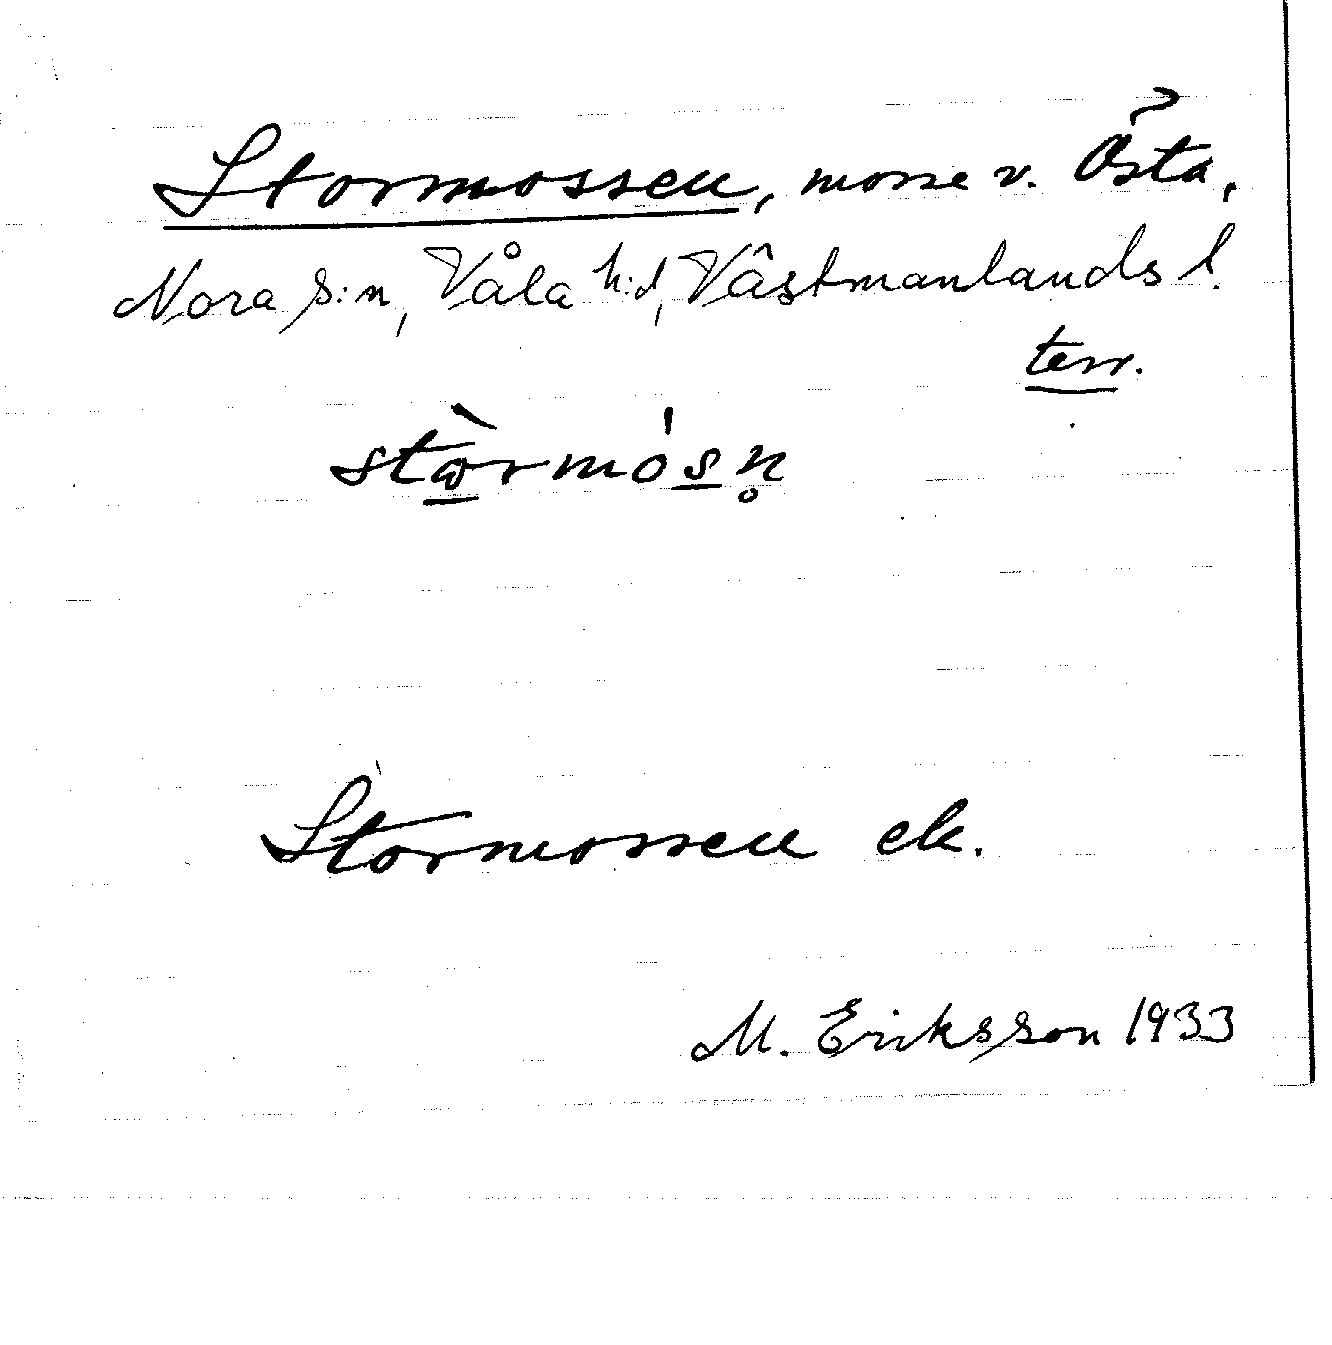 Stormossen, mosse v. Östa,
Nora s:n, Våla h:d, Västmanlands l.
terr.
stòrmósn̥
Stormossen ek.
M. Eriksson 1933